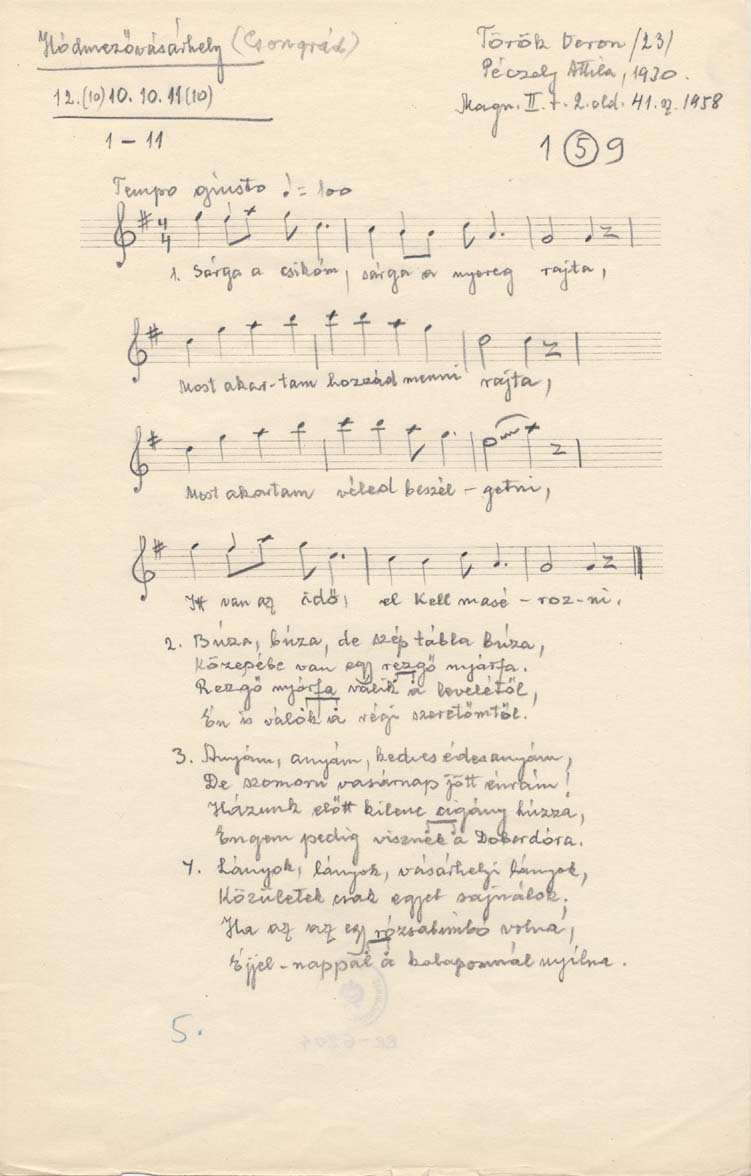 Hódmezővásárhely (Csongrád)
Török Veron /23/
Péczely Attila, 1930.
12.(10) 10. 10. 11(10)
Magn. II. t. 2. old. 41. sz. 1958
1 – 11
1 5 9
Tempo giusto ♩ = 100
4
4
1. Sárga a csikóm, sárga a nyereg rajta,
Most akar-tam hozzád menni rajta,
Most akartam véled beszél – getni,
Itt van az idő, el kell masé – roz-ni.
2. Búza, búza, de szép tábla búza,
Közepébe van egy rezgő nyárfa.
Rezgő nyárfa válik a levelétől,
Én is válok a régi szeretőmtől.
3. Anyám, anyám, kedves édesanyám,
De szomorú vasárnap jött énrám!
Házunk előtt kilenc cigány húzza,
Engem pedig visznek a Doberdóra.
4. Lányok, lányok, vásárhelyi lányok,
Közületek csak egyet sajnálok.
Ha az az egy rózsabimbó volna,
Éjjel-nappal a kalapomnál nyílna.
5.